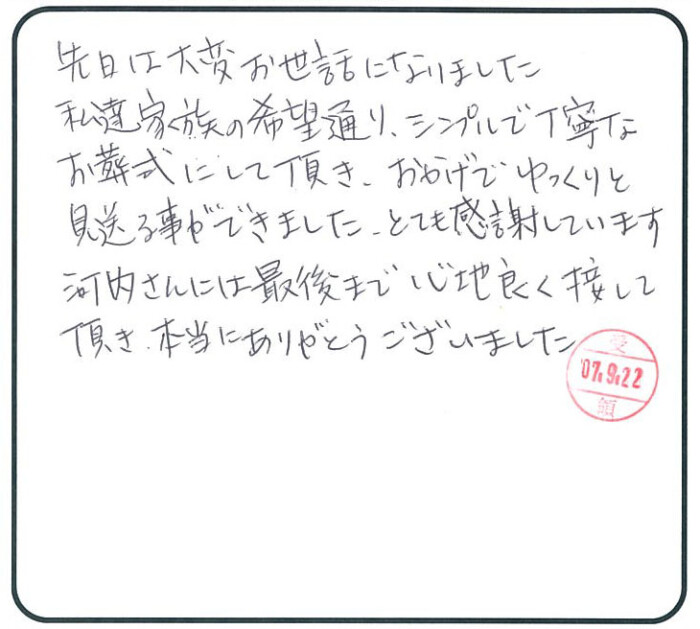 先日は大変お世話になりました
私達家族の希望通り、シンプルで丁寧な
お葬式にして頂き、おかげでゆっくりと
見送る事ができました、とても感謝しています
河内さんには最後まで心地良く接して
頂き、本当にありがとうございました
受
'07.9.22
領